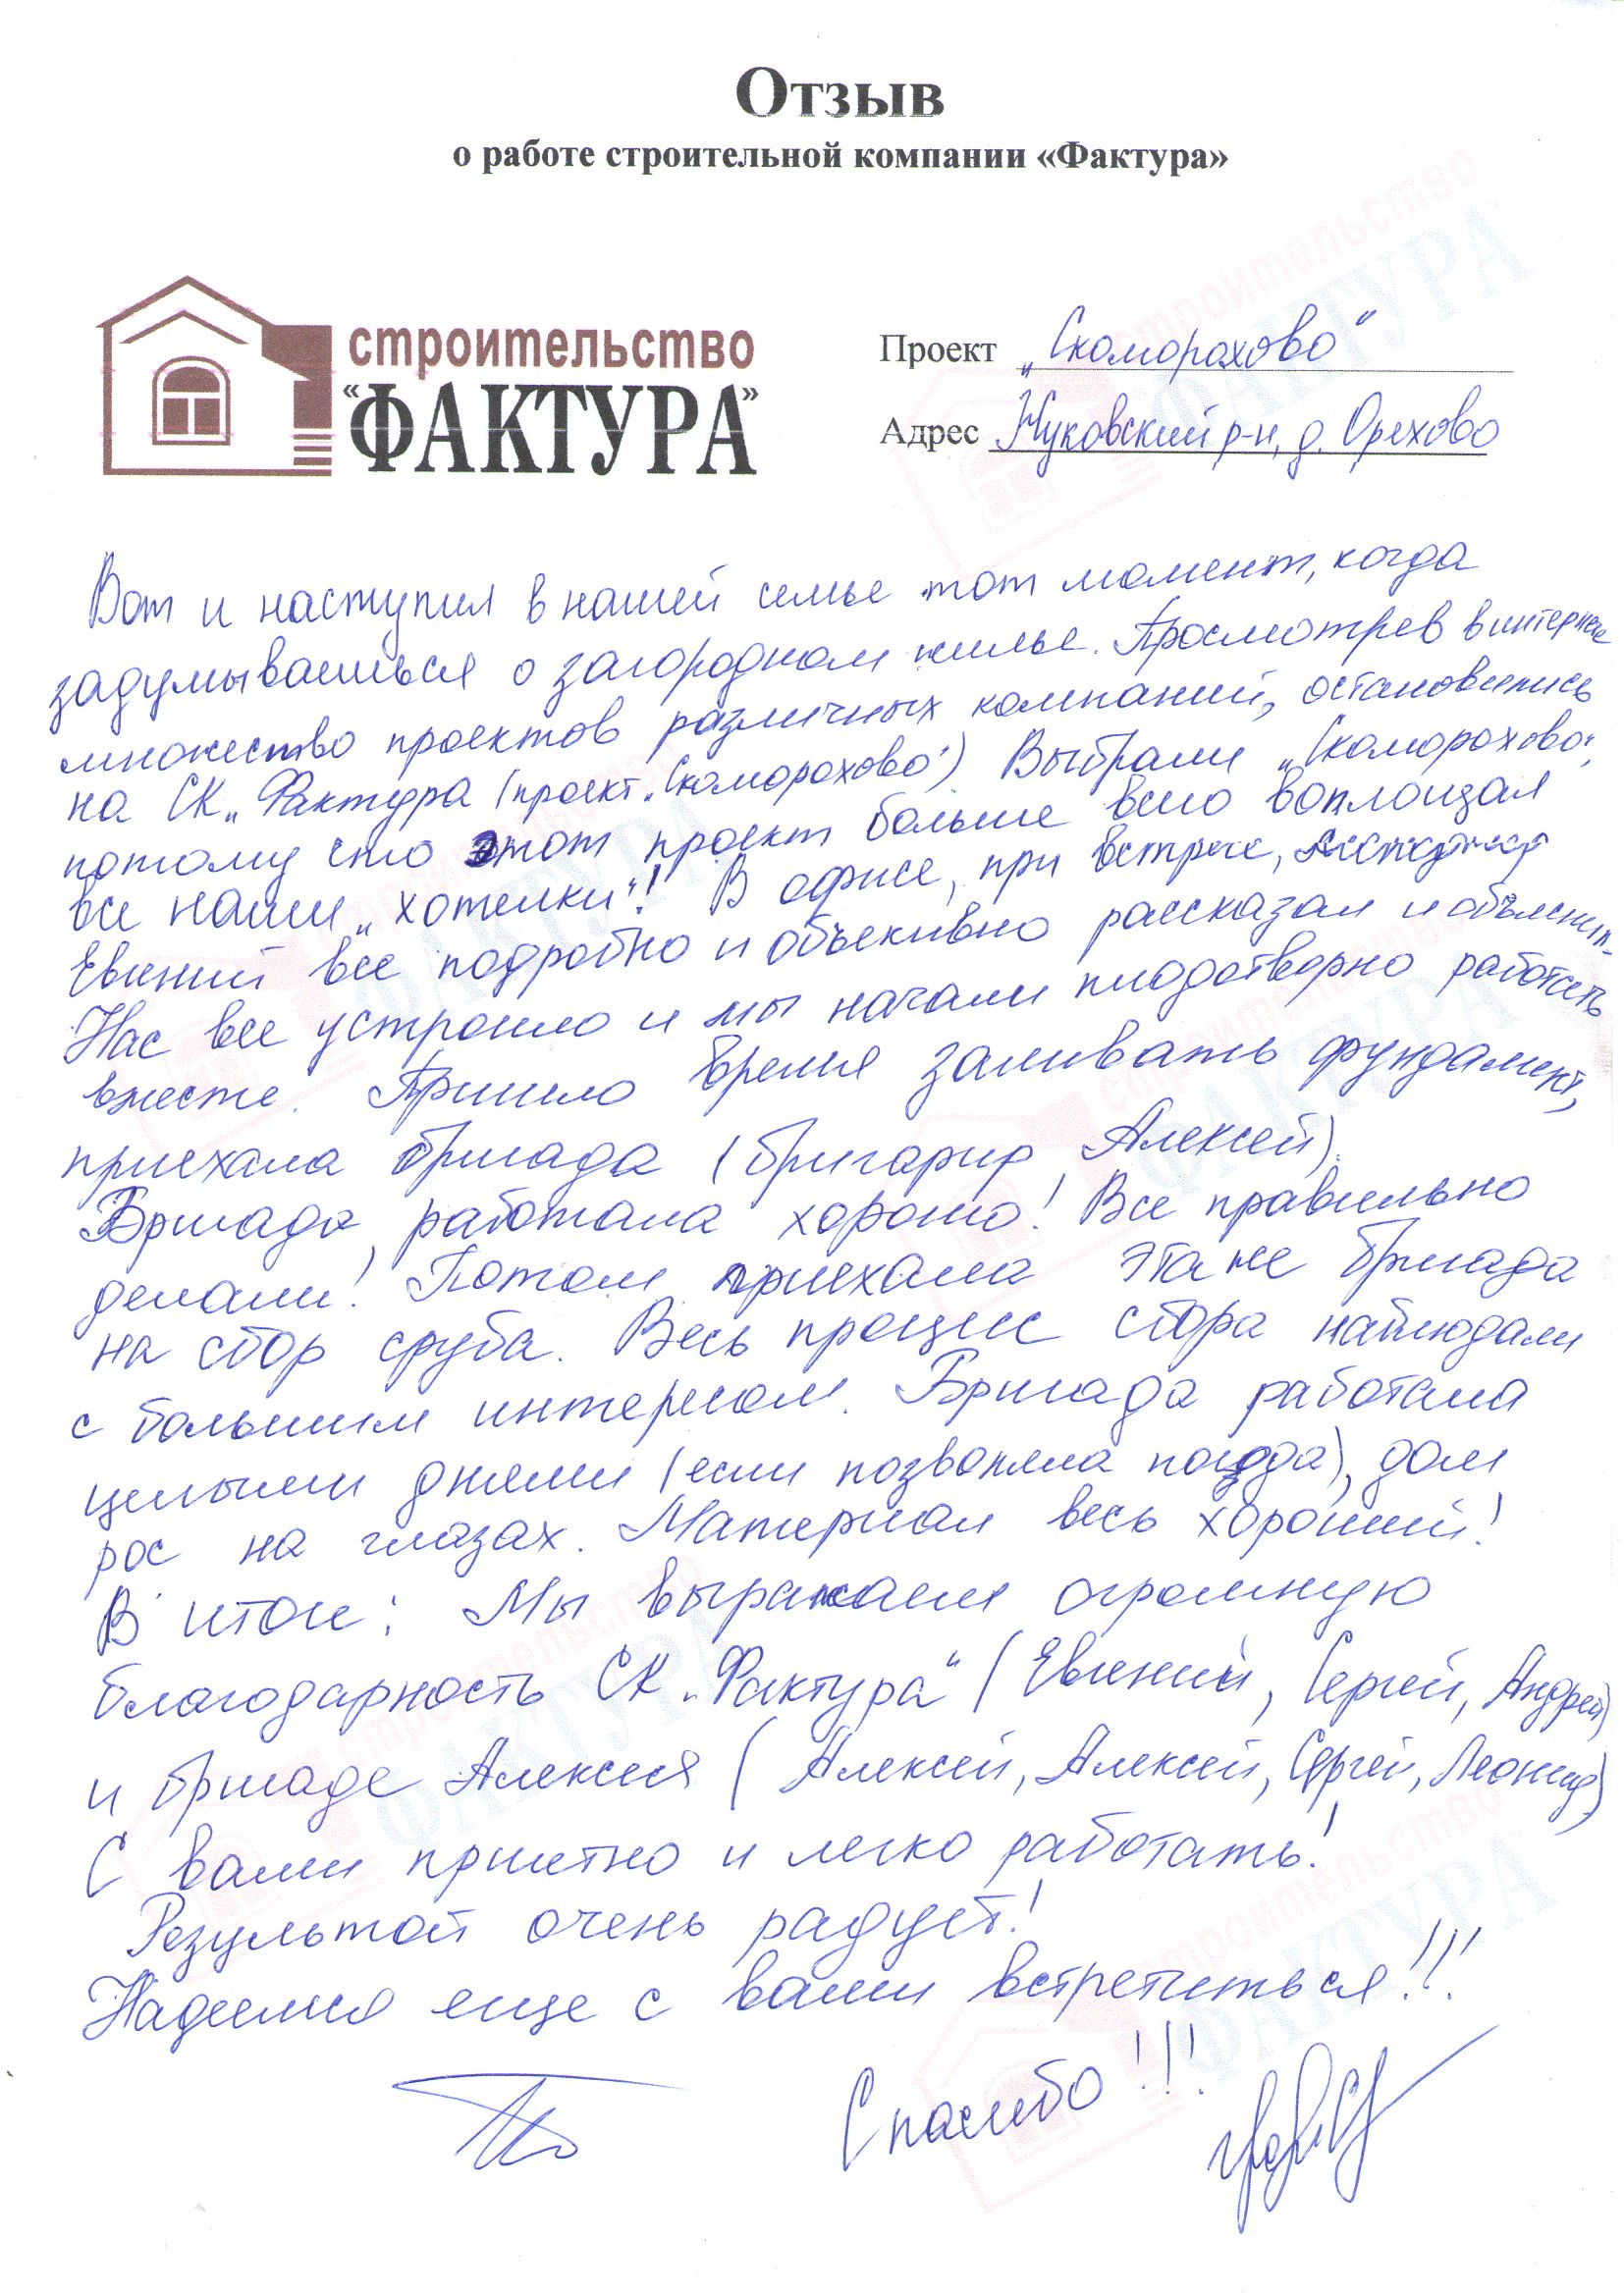 Отзыв
о работе строительной компании «Фактура»
строительство
"ФАКТУРА"
Проект „Скоморохово"
Адрес Жуковский р-н, д. Орехово
Вот и наступил в нашей семье тот момент, когда
задумываешься о загородном жилье. Просмотрев в интернете
множество проектов различных компаний, остановились
на СК „Фактура (проект „Скоморохово") Выбрали „Скоморохово",
потому что этот проект больше всего воплощал
все наши „хотелки"! В офисе, при встрече, менеджер
Евгений все подробно и объекивно рассказал и объяснил.
Нас все устроило и мы начали плодотворно работать
вместе. Пришло время заливать фундамент,
приехала бригада (бригарир Алексей).
Бригада, работала хорошо! Все правильно
делали! Потом приехала эта же бригада
на сбор сруба. Весь процесс сбора наблюдали
с большим интересом. Бригада работала
целыми днями (если позволяла погода), дом
рос на глазах. Материал весь хороший!
В итоге: Мы выражаем огромную
благодарность СК „Фактура" (Евгений, Сергей, Андрей)
и бригаде Алексея (Алексей, Алексей, Сергей, Леонид)
С вами приятно и легко работать!
Результой очень радует!
Надеемся еще с вами встретиться!!!
Спасибо!!!